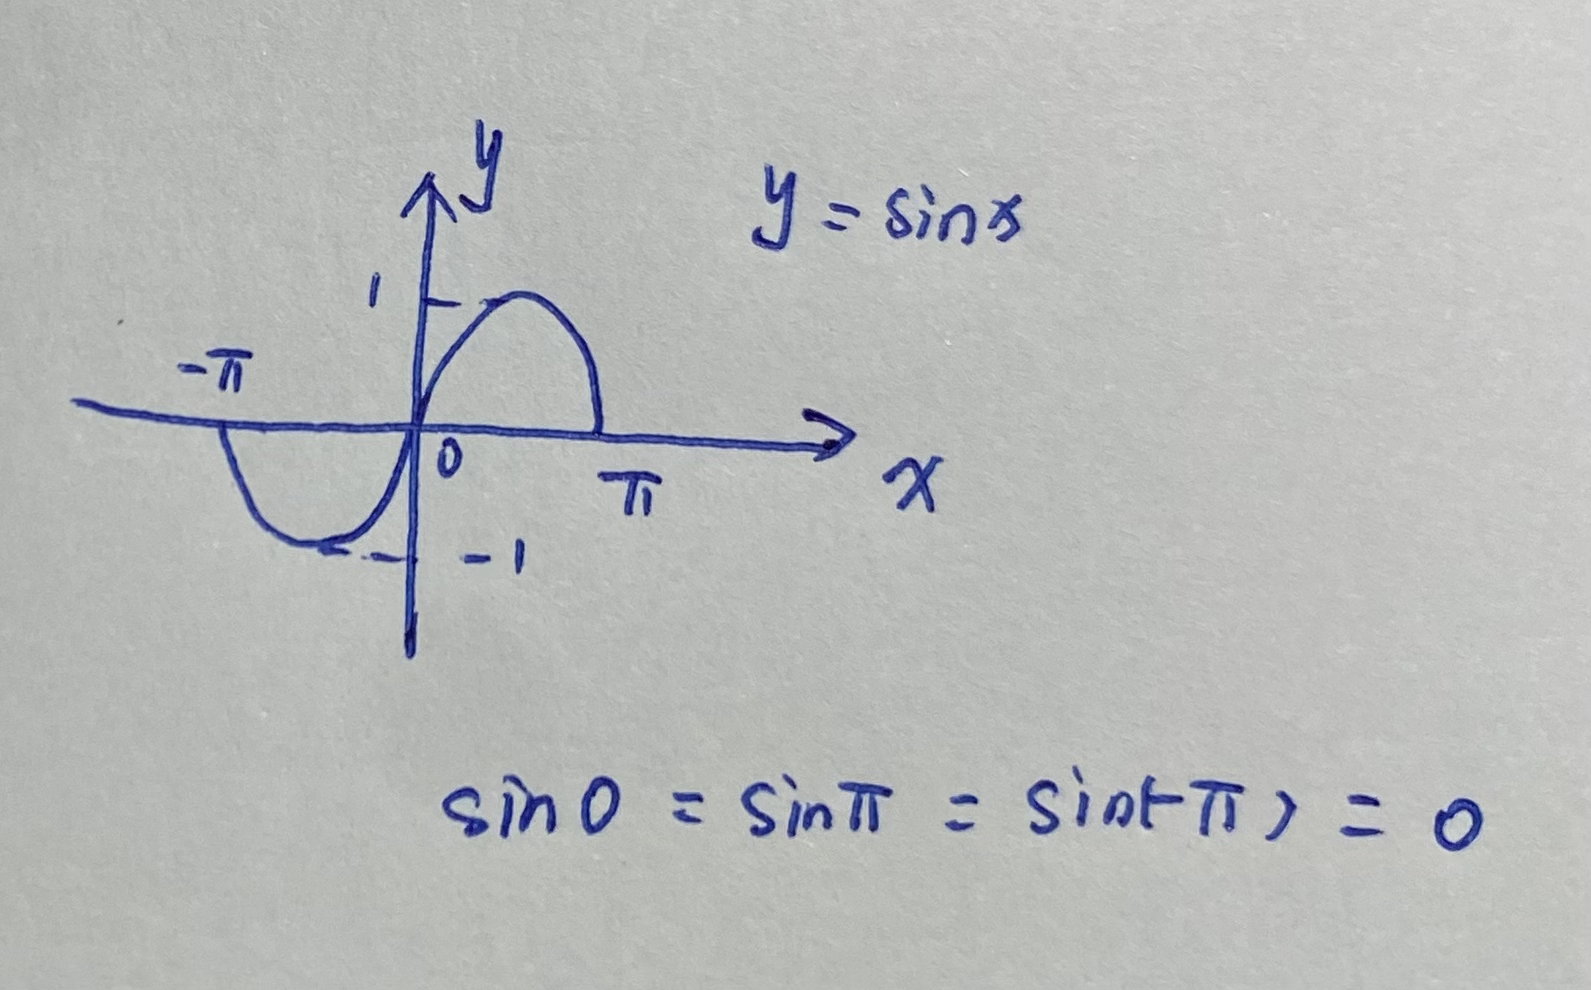 y
y = sinx
1
-π
0
π
x
-1
sin0 = sinπ = sin(-π) = 0